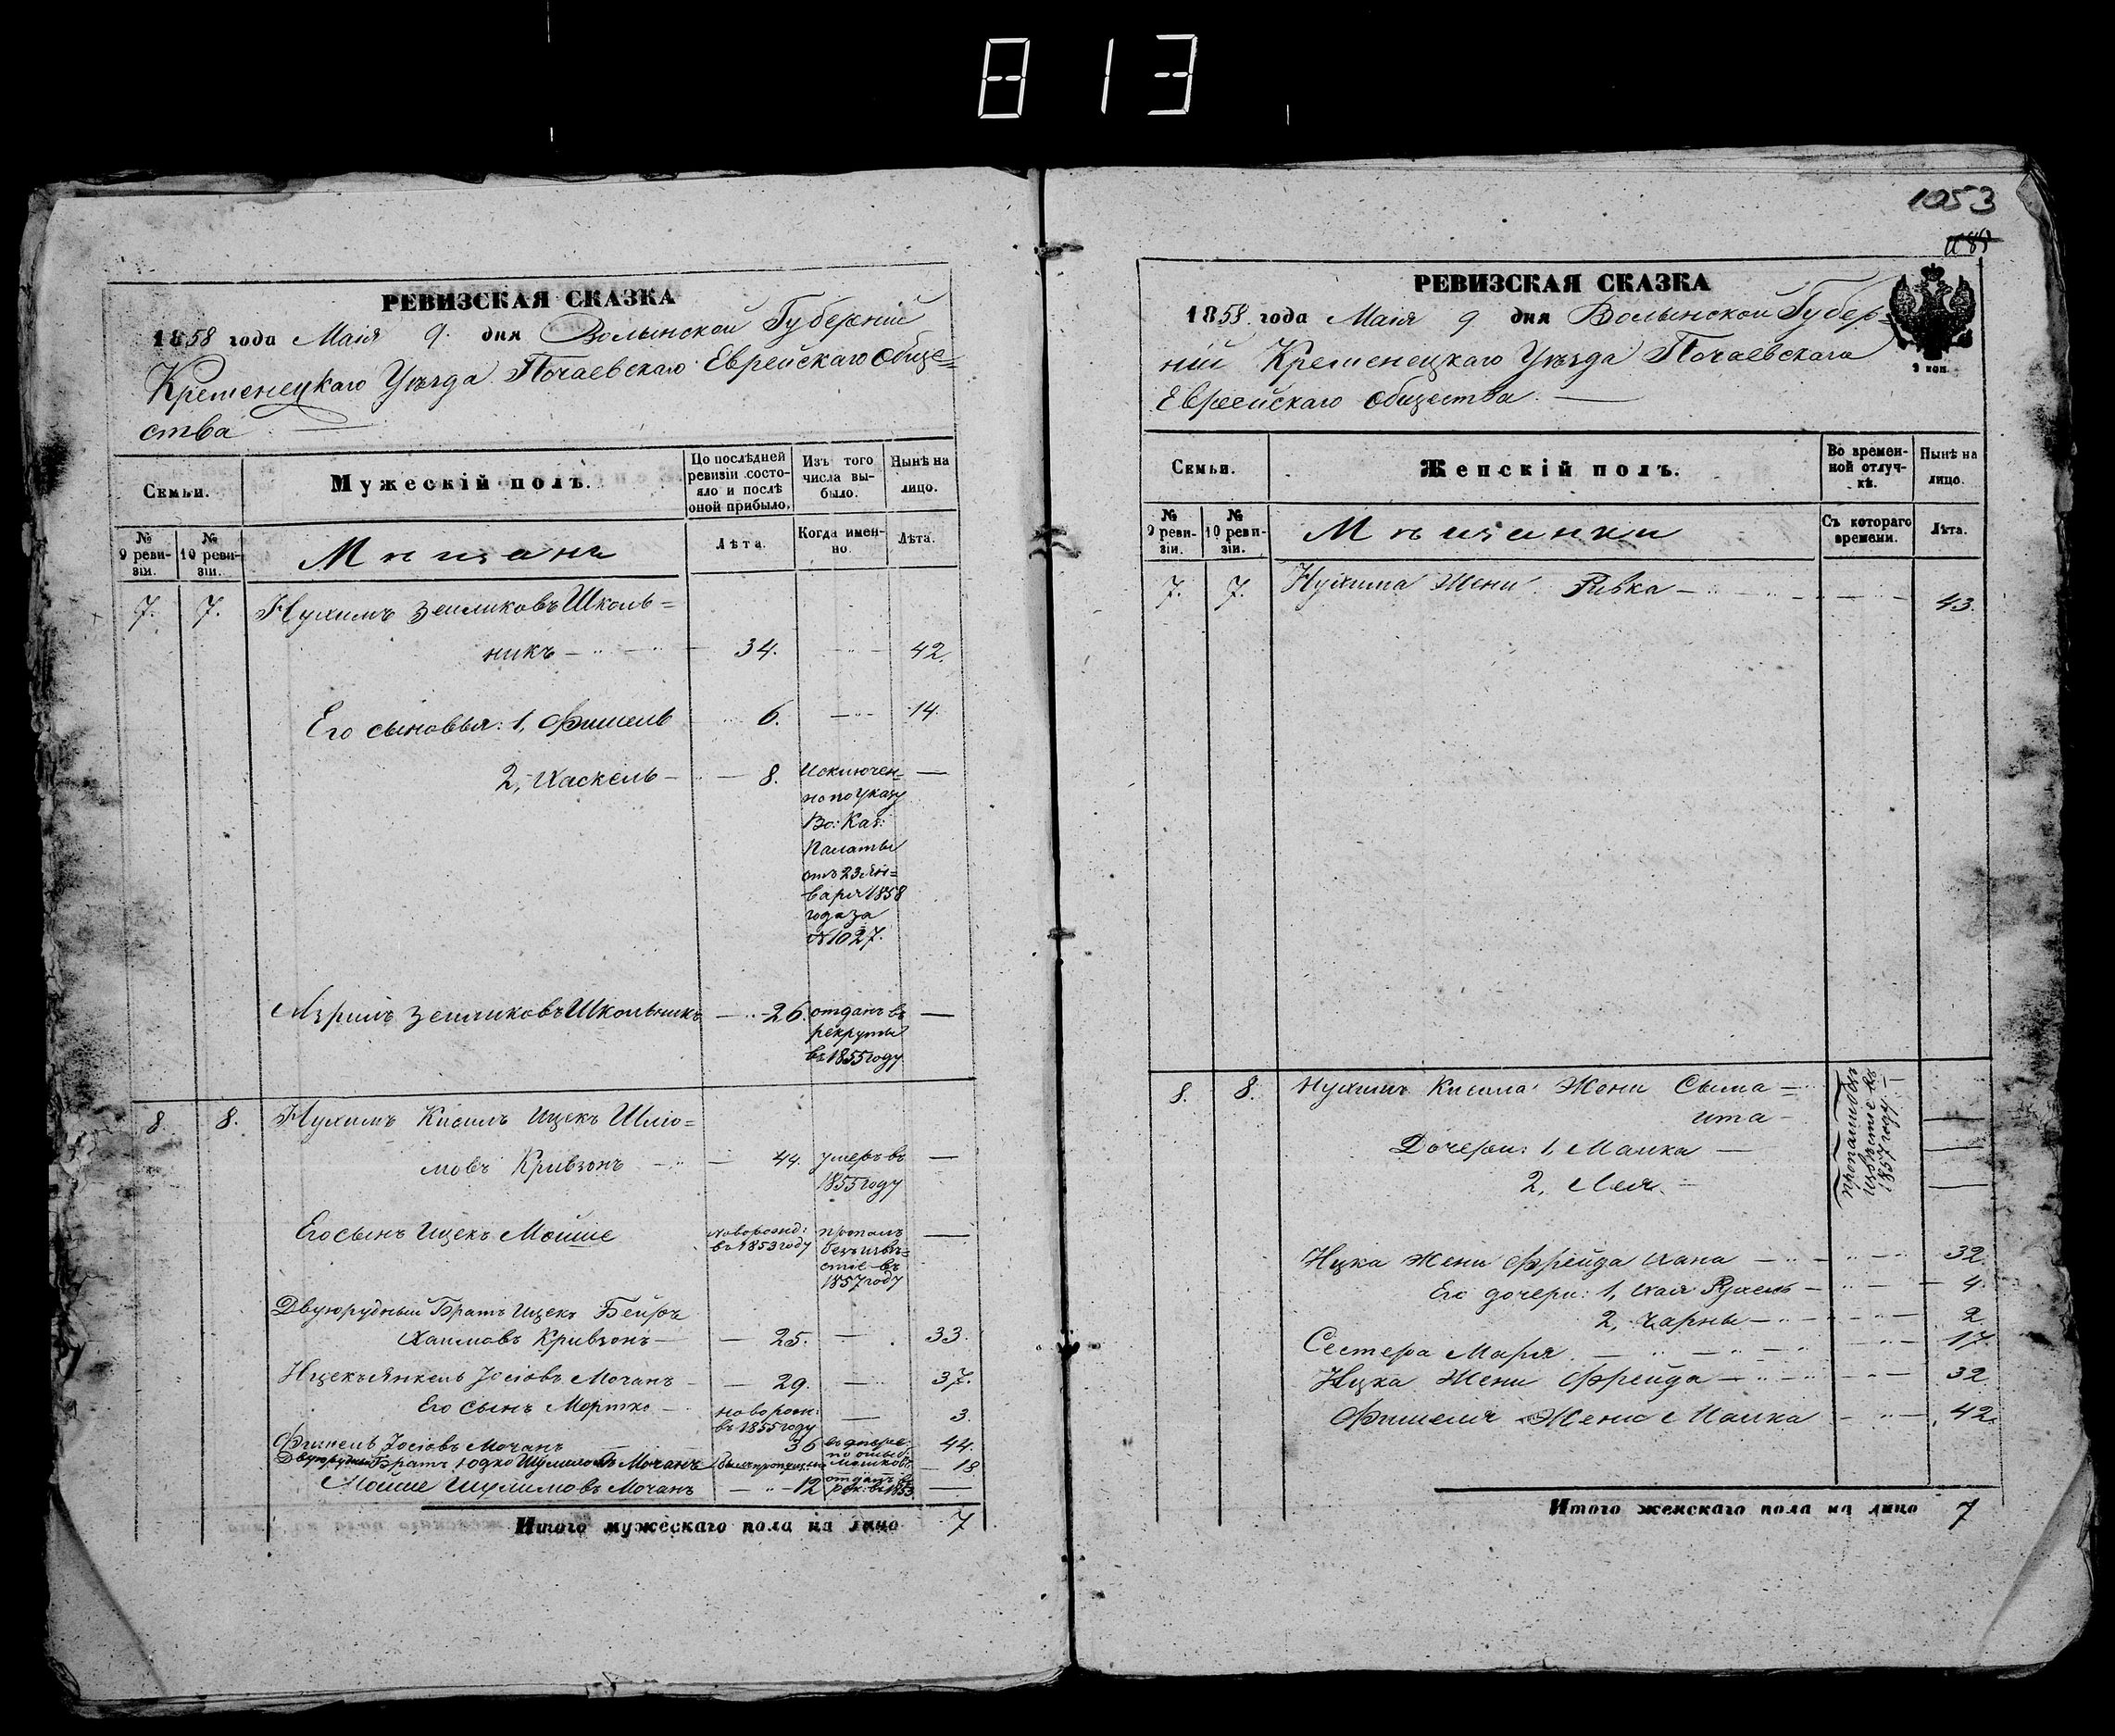 813
РЕВИЗСКАЯ СКАЗКА
1858 года Маія 9. дня Волынской Губерніи
Кременецкаго Уѣзда Почаевскаго Еврейскаго Обще=
ства
Семьи.
Мужескій полъ.
По послѣдней ревизіи состояло и послѣ оной прибыло.
Изъ того числа выбыло.
Нынѣ на лицо.
№ 9 ревизіи.
№ 10 ревизіи.
Мѣщанъ
Лѣта.
Когда именно.
Лѣта.
7. 7. Нухимъ Зейликовъ Школь=
никъ 34. 42.
Его сыновья: 1, Фишель 6. 14.
2, Хаскель 8. Исключен=
но по Указу
Во: Каз:
Палаты
отъ 23 Ян=
варя 1858
года за
№ 1027.
Азриль Зейликовъ Школьникъ 26. отданъ въ
рекруты
въ 1855 году
8. 8. Нухимъ Кисиль Ицекъ Шлio=
мовъ Кривзонъ 44. умеръ въ
1855 году
Его сынъ Ицекъ Мойше
новорожд:
въ 1853 году
пропалъ
безъ извѣ=
стіе въ
1857 году
Двуюрудный Братъ Ицекъ Бейръ
Хаимовъ Кривзонъ 25. 33.
Ицекъ Янкель Іосіовъ Мочанъ 29. 37.
Его сынъ Мортко
новорож:
въ 1855 году
3.
Фишель Іосіовъ Мочанъ 36 44.
Двуюрудный Братъ Юдко Шулимовъ Мочанъ былъ пропущенъ 18
Мойше Шулимовъ Мочанъ 12 отданъ въ
рек: въ 1853
Итого мужескаго пола на лицо 7
1053
РЕВИЗСКАЯ СКАЗКА
1858. года Маія 9 дня Волынской Губер=
ніи Кременецкаго Уѣзда Почаевскаго
Еврейскаго Общества
9 коп.
Семьи.
Женскій полъ.
Во временной отлучкѣ.
Нынѣ на лицо.
№ 9 ревизіи.
№ 10 ревизіи.
Мѣщанки
Съ котораго времени.
Лѣта.
7. 7. Нухима Жена Ривка 43.
8. 8. Нухимъ Кисила Жена Сыма=
ита
Дочери: 1, Малка
2, Лея
пропали безъ
извѣстіе въ
1857 году
Ицка Жена Фрейда Хана 32
Его дочери: 1, Хая Рухель 4.
2, Чарны 2
Сестера Марія 17.
Ицка Жена Фрейда 32
Фишеля Жена Малка 42.
Итого женскаго пола на лицо 7